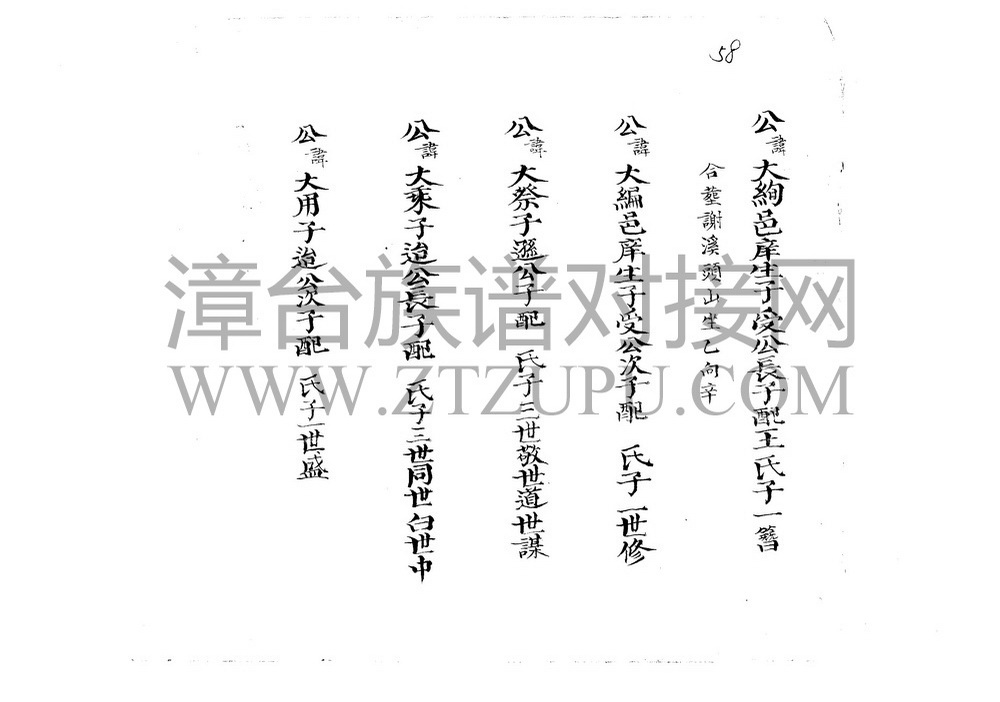 58
公諱大絢邑庠生子受公長子配王氏子一簪
合塟謝溪頭山坐乙向辛
公諱大編邑庠生子受公次子配 氏子一世修
公諱大祭子遜公子配 氏子三世敬世道世謀
公諱大乘子迨公長子配 氏子三世同世白世中
公諱大用子迨公次子配 氏子一世盛
漳台族谱对接网
WWW.ZTZUPU.COM